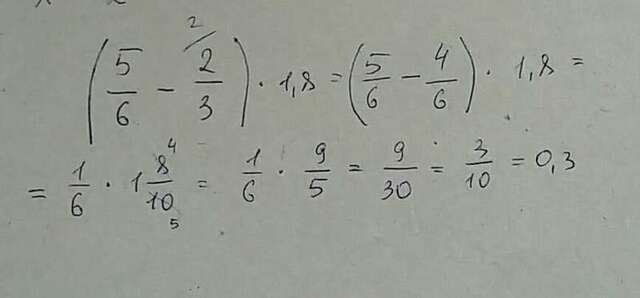 (5/6 - 2/3 ²⁄) · 1,8 = (5/6 - 4/6) · 1,8 =
= 1/6 · 1 8⁴/10₅ = 1/6 · 9/5 = 9/30 = 3/10 = 0,3